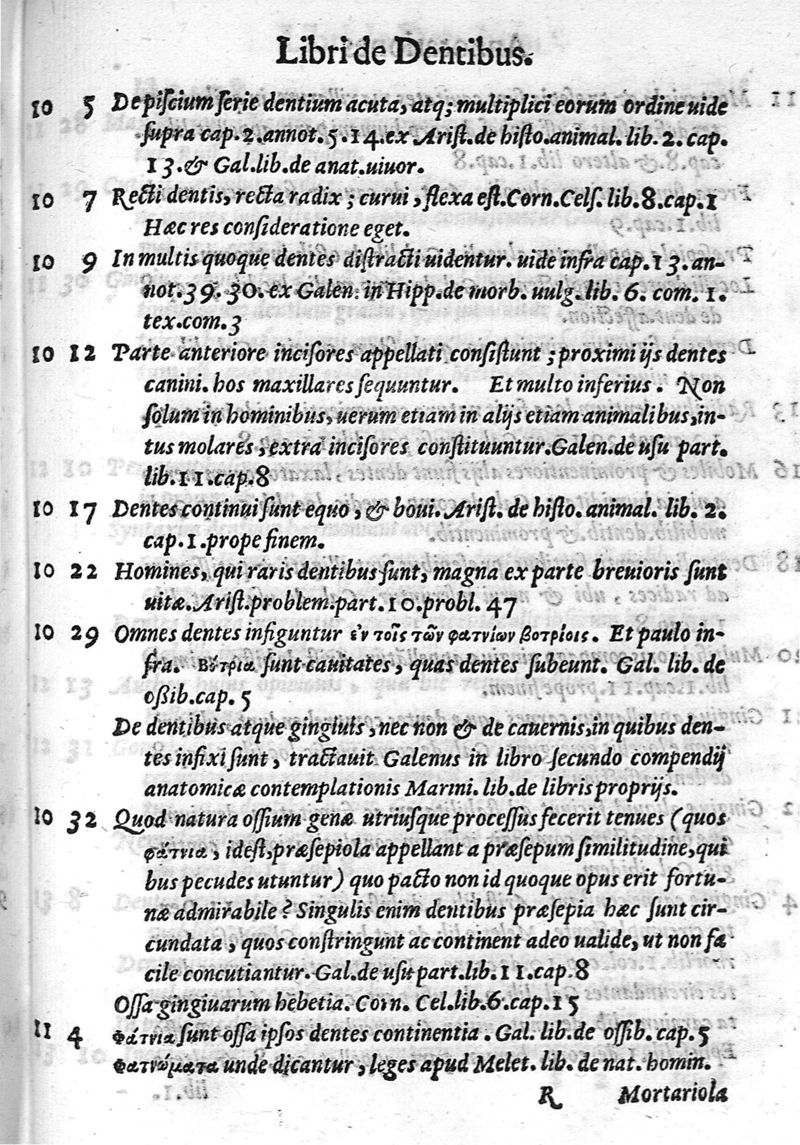 Libri de Dentibus.
10 5 De piſcium ſerie dentium acuta, atq; multiplici eorum ordine uide
ſupra cap. 2. annot. 5. 14. ex Ariſt. de hiſto. animal. lib. 2. cap.
13. & Gal. lib. de anat. uiuor.
10 7 Recti dentis, recta radix; curui, flexa eſt. Corn. Celſ. lib. 8. cap. 1
Hæc res conſideratione eget.
10 9 In multis quoque dentes diſtracti uidentur. uide infra cap. 13. an-
not. 39. 30. ex Galen. in Hipp. de morb. uulg. lib. 6. com. 1.
tex. com. 3
10 12 Parte anteriore inciſores appellati conſiſtunt; proximi ijs dentes
canini. hos maxillares ſequuntur. Et multo inferius. Non
ſolum in hominibus, uerum etiam in alijs etiam animalibus, in-
tus molares, extra inciſores conſtituuntur. Galen. de uſu part.
lib. 11. cap. 8
10 17 Dentes continui ſunt equo, & boui. Ariſt. de hiſto. animal. lib. 2.
cap. 1. prope finem.
10 22 Homines, qui raris dentibus ſunt, magna ex parte breuioris ſunt
uitæ. Ariſt. problem. part. 10. probl. 47
10 29 Omnes dentes infiguntur ἐν τοῖς τῶν φατνίων βοτρίοις. Et paulo in-
fra. Βότρια ſunt cauitates, quas dentes ſubeunt. Gal. lib. de
oßib. cap. 5
De dentibus atque gingiuis, nec non & de cauernis, in quibus den-
tes infixi ſunt, tractauit Galenus in libro ſecundo compendij
anatomicæ contemplationis Marini. lib. de libris proprijs.
10 32 Quod natura oſſium genæ utriuſque proceſſus fecerit tenues (quos
φάτνια, ideſt, præſepiola appellant a præſepum ſimilitudine, qui
bus pecudes utuntur) quo pacto non id quoque opus erit fortu-
næ admirabile? Singulis enim dentibus præſepia hæc ſunt cir-
cundata, quos conſtringunt ac continent adeo ualide, ut non fa
cile concutiantur. Gal. de uſu part. lib. 11. cap. 8
Oſſa gingiuarum hebetia. Corn. Cel. lib. 6. cap. 15
11 4 Φάτνια ſunt oſſa ipſos dentes continentia. Gal. lib. de oſſib. cap. 5
Φατνώματα unde dicantur, leges apud Melet. lib. de nat. homin.
R Mortariola